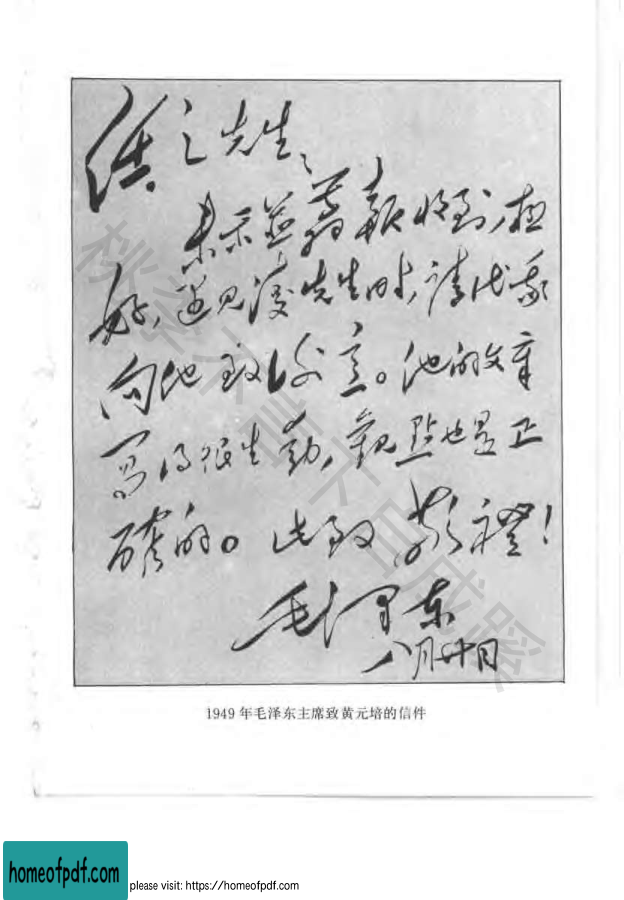 任之先生、
来示並報收到,极
好,遇见先生时,请代我
向他致谢意。他的文章
写得很生动,观点也是正
确的。此致 敬礼!
毛泽东
八月廿日
桃李不言下自成蹊
1949 年毛泽东主席致黄元培的信件
homeofpdf.com
please visit: https://homeofpdf.com